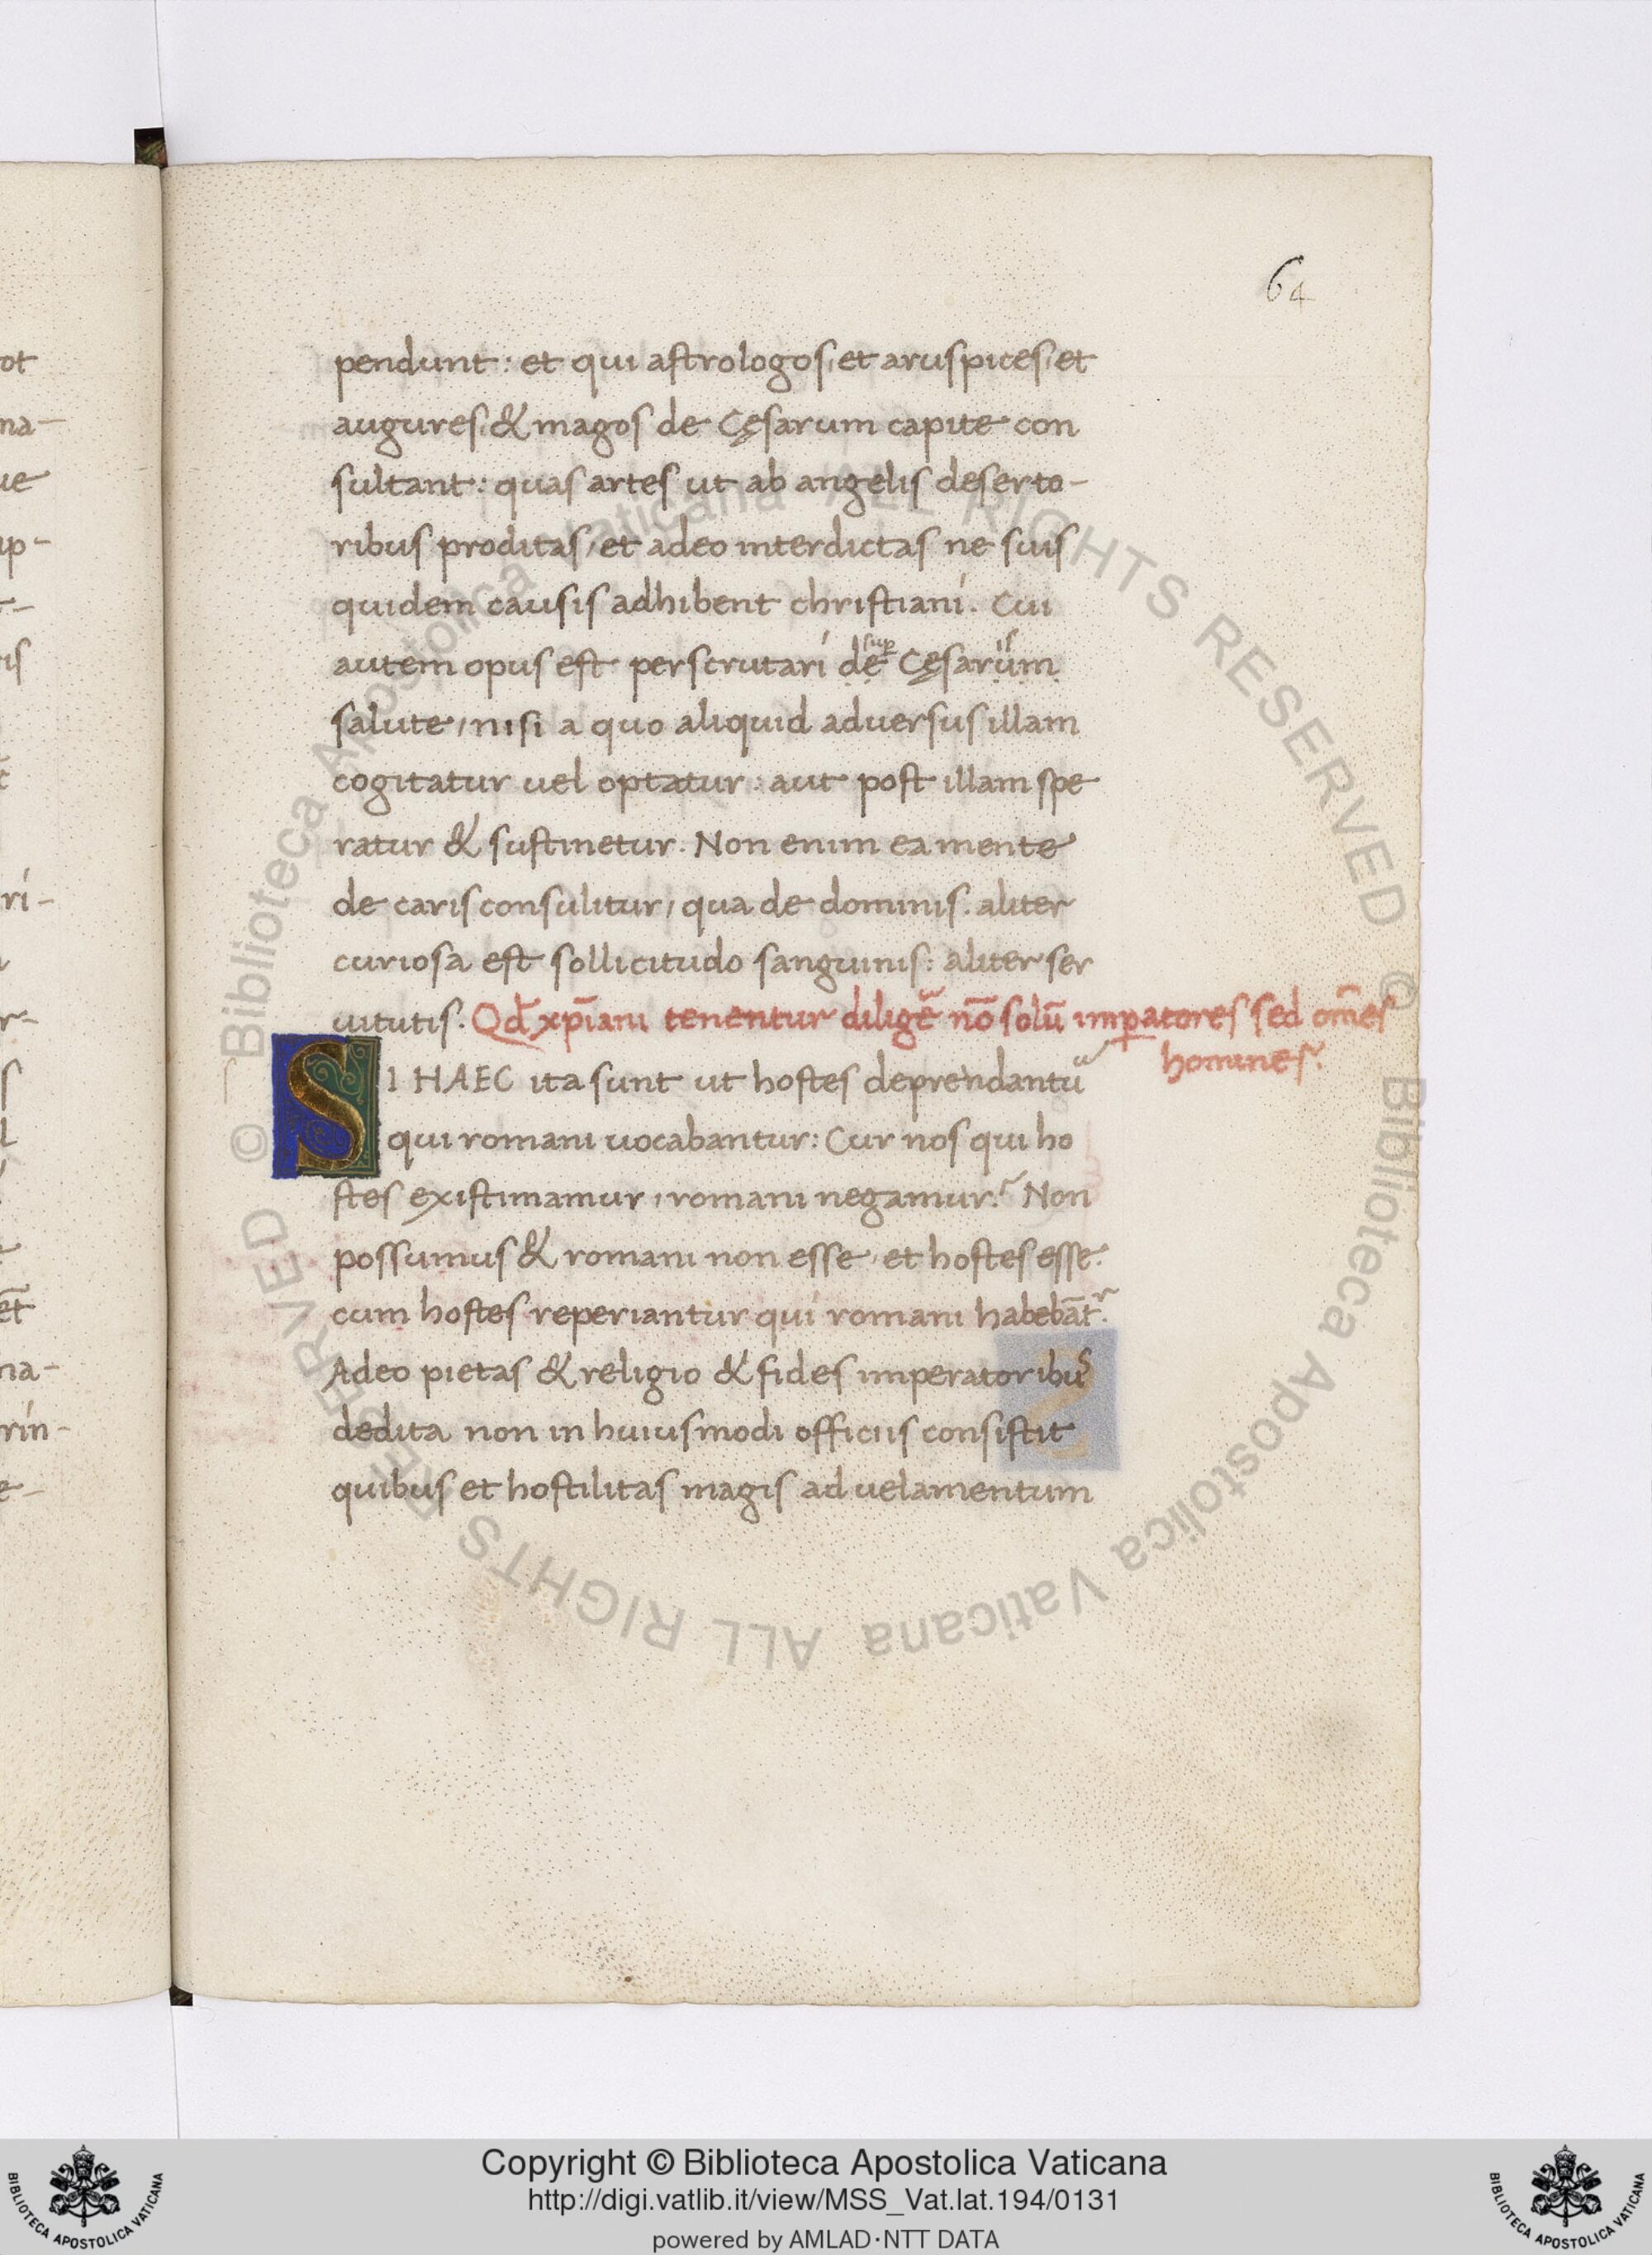 64
pendunt: et qui astrologos, et aruspices, et
augures, & magos de Cęsarum capite con
sultant: quas artes ut ab angelis deserto-
ribus proditas, et adeo interdictas ne suis
quidem causis adhibent christiani. Cui
sup is
autem opus est perscrutari de Cęsarum
salute, nisi a quo aliquid adversus illam
cogitatur vel optatur: aut post illam spe
ratur & sustinetur. Non enim ea mente
de caris consulitur, qua de dominis. aliter
curiosa est sollicitudo sanguinis: aliter ser
uitutis. Qd̄ xp̄iani tenentur diligē nō solū imꝑatores sed om̄es
homines.
SI HAEC ita sunt ut hostes deprendantur
qui romani uocabantur: Cur nos qui ho
stes existimamur, romani negamur? Non
possumus & romani non esse, et hostes esse.
cum hostes reperiantur qui romani habebāt^r.
Adeo pietas & religio & fides imperatoribus
dedita non in huiusmodi officiis consistit
quibus et hostilitas magis ad uelamentum
© Biblioteca Apostolica Vaticana ALL RIGHTS RESERVED
© Biblioteca Apostolica Vaticana ALL RIGHTS RESERVED
Copyright © Biblioteca Apostolica Vaticana
http://digi.vatlib.it/view/MSS_Vat.lat.194/0131
powered by AMLAD·NTT DATA
BIBLIOTECA APOSTOLICA VATICANA
BIBLIOTECA APOSTOLICA VATICANA